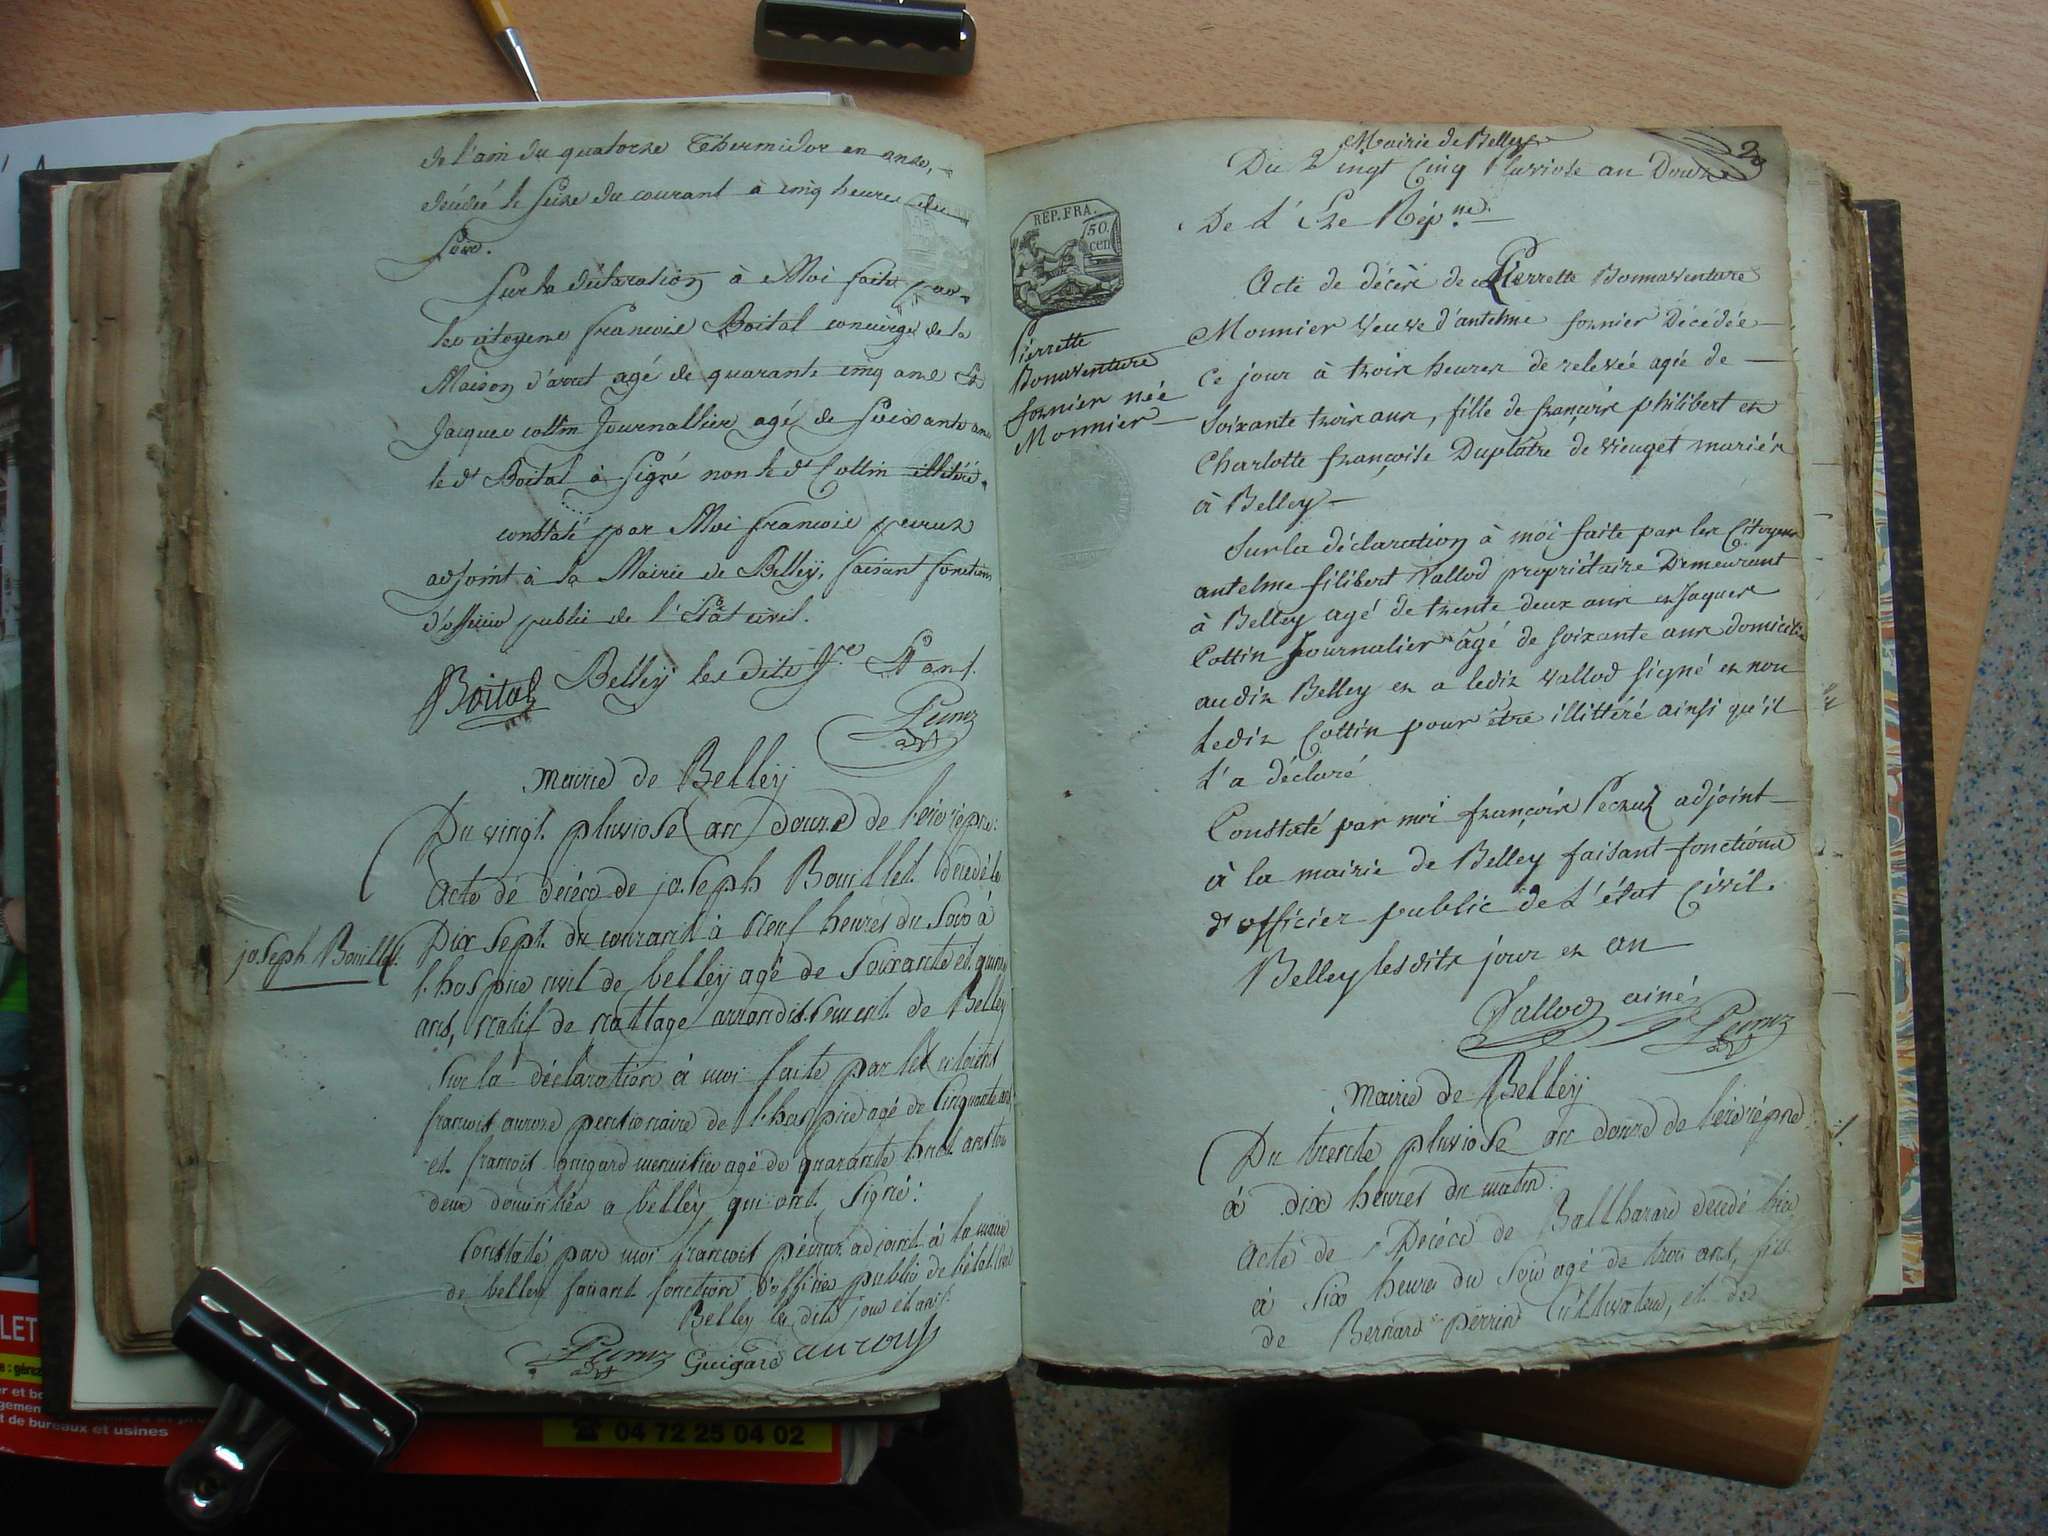 de l'ain du quatorze Thermidor en onze,
décédé le seize du courant à cinq heures du
soir.
Sur la déclaration à Moi faite par
les citoyens francois Boital concierge de la
Maison d'arret agé de quarante cinq ans Et
Jacques cottin Journallier agé de soixante ans
le dt Boital à signé non le dt Cottin illitéré.
constaté par Moi francois pecruz
adjoint à la Mairie de Belleÿ, faisant fonction
d'officier public de l'Etat civil.
Belleÿ les dits Jrs Et an.
Boital
adjt
mairie de Belleÿ
Du vingt pluviose an douze de l'ere repne.
joseph Bouillet.
Acte de decéce de joseph Bouillet decedé le
Dix sept du courant à Neuf heures du Soir à
l'hospice civil de belleÿ agé de Soixante et quinze
ans, natif de nattage arrondissement de Belley
Sur la déclaration à moi faite par les citoiens
francois aurouze pentionaire de l'hospice agé de Cinquante ans
et francois guigard menuisier agé de quarante huit ans tou
deux domiciliés a belleÿ qui ont Signé:
Constaté par moi francois pécruz adjoint à la mairie
de belley faisant fonction d'officier public de l'état civil
Belley les dits jour et an.
adjt Guigard
2
Mairie de Belley
Du Vingt Cinq Pluviose an Douze
De L'Ere Répne.
REP. FRA.
50
cen
Pierrette
Bonaventure
fornier née
Monnier
Acte de décès de Pierrette Bonnaventure
Monnier Veuve d'antelme fornier Décédée
Ce jour à trois heures de relevée agée de
Soixante trois ans, fille de françois philibert et
Charlotte françoise Duplatre de vieuget mariés
à Belley
Sur la déclaration à moi faite par les Citoyens
antelme filibert Vallod propriétaire Demeurant
à Belley agé de trente deux ans et Jaques
Cottin Journalier âgé de soixante ans domicilié
audit Belley et a ledit Vallod signé et non
Ledit Cottin pour être illittéré ainsi qu'il
L'a déclaré
Constaté par moi françois Pecruz adjoint
à la mairie de Belley faisant fonctions
d'officier public de L'état Civil.
Belley lesdits jour et an
Vallod ainé
adjt
mairie de Belleÿ
Du trente pluviose an douze de l'ere répne
à dix heures du matin:
Acte de Decéce de Balthazard decedé hier
à Six heures du Soir agé de trois ans, fils
de Bernard Perrin Cultivateur, et de
LET
et de bureaux et usines
☎ 04 72 25 04 02